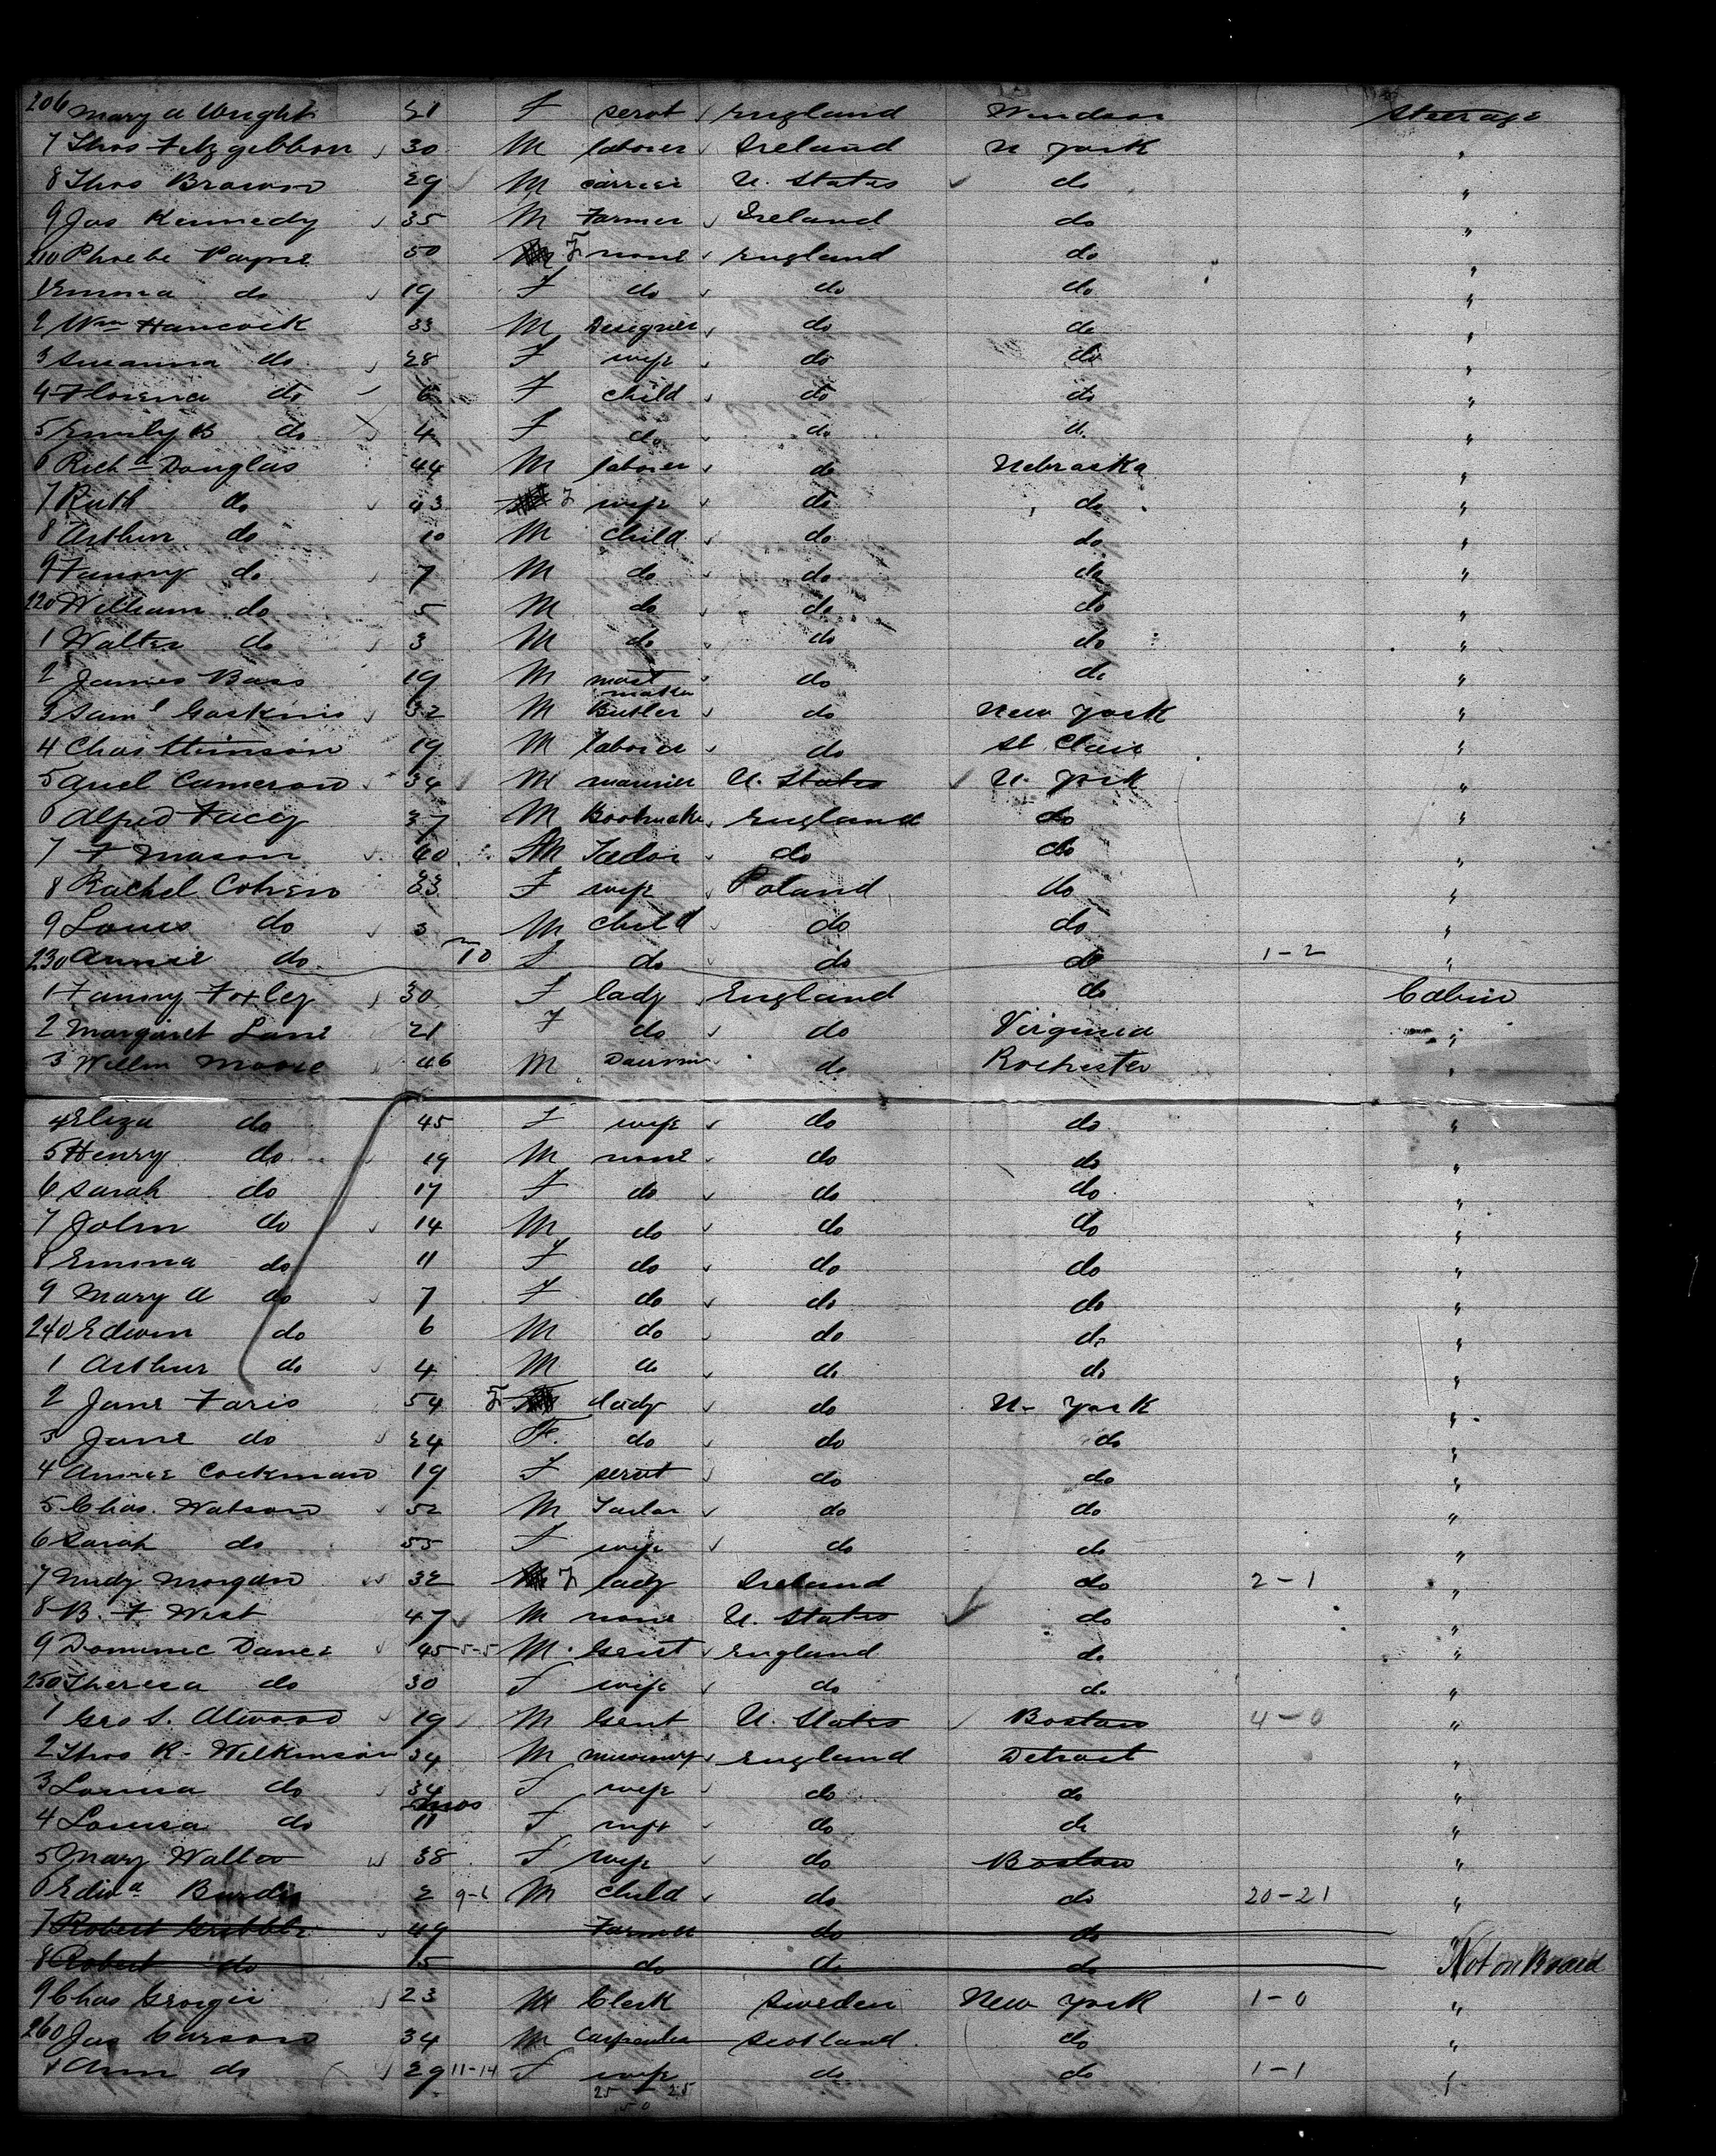 206 Mary A Wright 21 F servt England Windsor Steerage
7 Thos Fitzgibbon 30 M laborer Ireland N York "
8 Thos Brown 29 M U. States do "
9 Jas Kennedy 35 M Farmer Ireland do "
210 Phoebe Payne 50 F none England do "
1 Emma do 19 F do do do "
2 Wm Hancock 33 M Designer do do "
3 Susanna do 28 F wife do do "
4 Florence do 6 F child do do "
5 Emily B do 4 F do do do "
6 Richd Douglas 44 M laborer do Nebraska "
7 Ruth do 43 F wife do do "
8 Arthur do 10 M child do do "
9 Fanny do 7 M do do do "
220 William do 5 M do do do "
1 Walter do 3 M do do do "
2 James Bass 19 M mast maker do do "
3 Saml Gaskins 32 M Butler do New York "
4 Chas Stimson 19 M laborer do St Clair "
5 Cameron 34 M U. States N. York "
6 Alfred Facey 37 M England do "
7 F Mason 60 M Tailor do do "
8 Rachel Cohen 33 F wife Poland do "
9 Louis do 3 M child do do "
230 Annie do 10 F do do do 1-2 "
1 Fanny Foxley 30 F lady England do Cabin
2 Margaret Lane 21 F do do Virginia "
3 Willm Moore 46 M do Rochester "
4 Eliza do 45 F wife do do "
5 Henry do 19 M none do do "
6 Sarah do 17 F do do do "
7 John do 14 M do do do "
8 Emma do 11 F do do do "
9 Mary A do 7 F do do do "
240 Edwin do 6 M do do do "
1 Arthur do 4 M do do do "
2 Jane Faris 54 F lady do N. York "
3 Jane do 24 F. do do do "
4 Annie Cockman 19 F servt do do "
5 Chas. Watson 52 M Tailor do do "
6 Sarah do 55 F wife do do "
7 Morgan 32 F lady Ireland do 2-1 "
8 B. F West 47 M none U. States do "
9 Dominic Dance 45 5-5 M Gent England do "
250 Theresa do 30 F wife do do "
1 Geo S. Atwood 19 M Gent U. States Boston 4-0 "
2 Thos R. Wilkinson 34 M England Detroit "
3 Louisa do 34 F wife do do "
4 Louisa do 11 mos F do do "
5 Mary Walton 38 F wife do Boston "
6 Edwd Burdis 2 9-6 M child do do 20-21 "
7 Robert Gribble 49 Farmer do do "
8 Robert do 15 do do do Not on Board
9 Chas George 23 M Clerk Sweden New York 1-0 "
260 Jas Carson 34 M Carpenter Scotland do "
1 Ann do 29 11-14 F wife do do 1-1 "
25 25
50